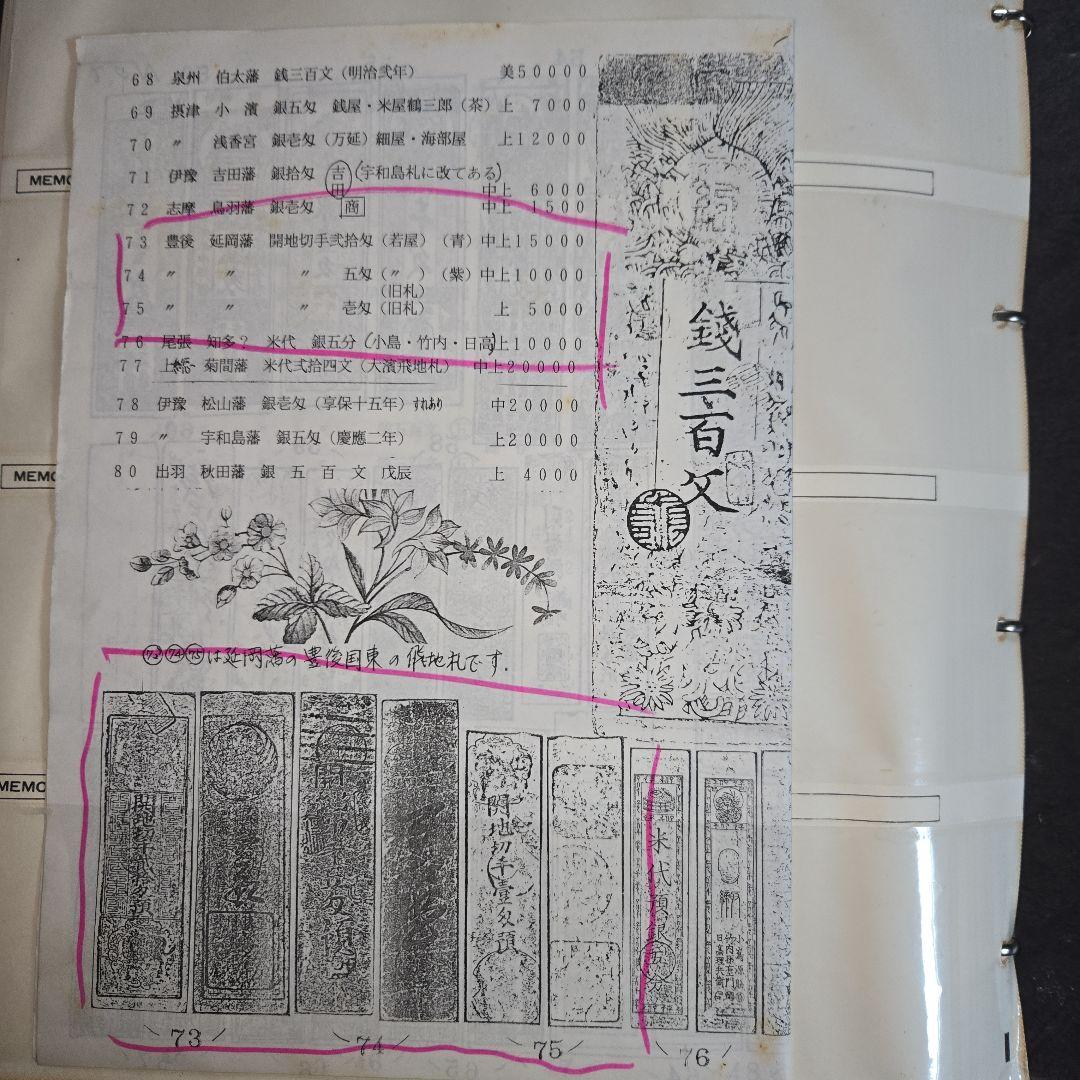 68 泉州 伯太藩 銭三百文(明治弐年) 美50000
69 摂津 小濱 銀五匁 銭屋・米屋鶴三郎(茶)上 7000
70 〃 浅香宮 銀壱匁(万延)細屋・海部屋 上12000
71 伊豫 吉田藩 銀拾匁 吉田(宇和島札に改てある) 中上 6000
72 志摩 鳥羽藩 銀壱匁 商 中上 1500
73 豊後 延岡藩 開地切手弐拾匁(若屋)(青)中上15000
74 〃 〃 〃 五匁(〃)(紫)中上10000
(旧札)
75 〃 〃 〃 壱匁(旧札) 上 5000
76 尾張 知多? 米代 銀五分(小島・竹内・日高)上10000
77 上総 菊間藩 米代弐拾四文(大濱飛地札) 中上20000
78 伊豫 松山藩 銀壱匁(享保十五年)すれあり 中20000
79 〃 宇和島藩 銀五匁(慶應二年) 上20000
80 出羽 秋田藩 銀五百文 戊辰 上 4000
錢三百文
㊆㊆㊆は延岡藩の豊後国東の飛地札です.
開地切手壹匁預
米代預銀五分
73
74
75
76
MEMO
MEMO
MEMO